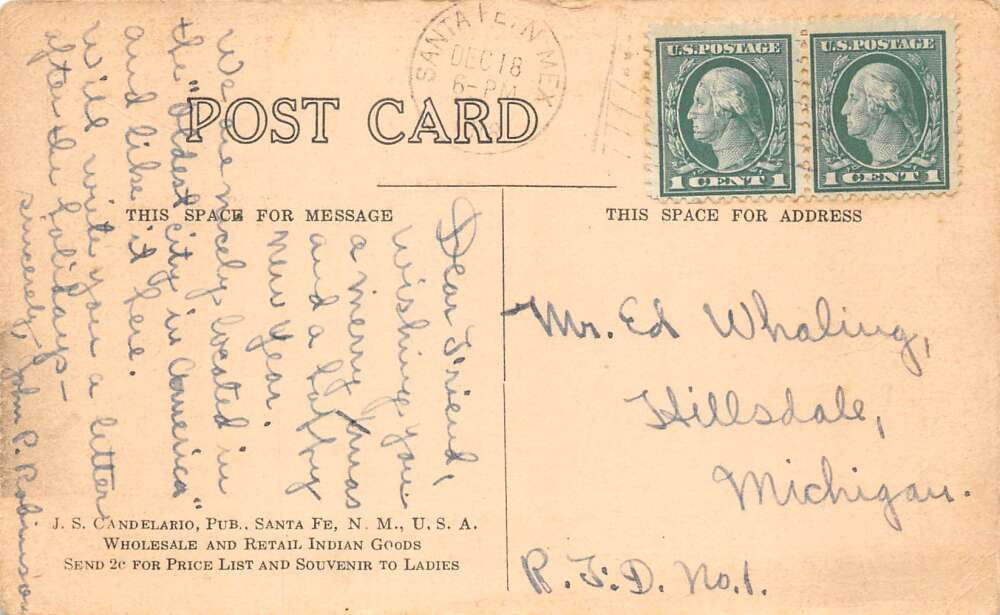 SANTA FE, N. MEX
DEC 18
6-PM
U.S. POSTAGE
1 CENT 1
U.S. POSTAGE
1 CENT 1
POST CARD
THIS SPACE FOR MESSAGE
THIS SPACE FOR ADDRESS
Dear Friend,
wishing you
a merry Xmas
and a happy
New Year.
We are nicely located in
the "oldest city in America"
and like it here.
will write you a letter
after the holidays—
sincerely, John P. Robinson
Mr. Ed Whaling,
Hillsdale,
Michigan.
R. F. D. No. 1.
J. S. CANDELARIO, PUB., SANTA FE, N. M., U. S. A.
WHOLESALE AND RETAIL INDIAN GOODS
SEND 2c FOR PRICE LIST AND SOUVENIR TO LADIES